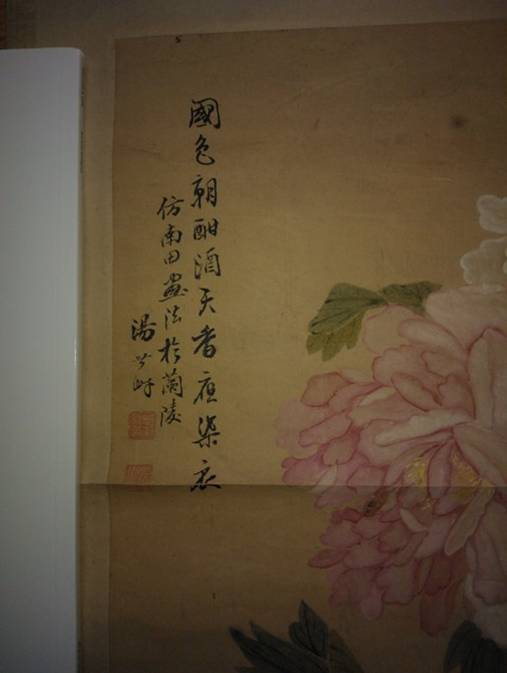 國色朝酣酒天香夜染衣
仿南田畫法於蘭陵
湯世澍